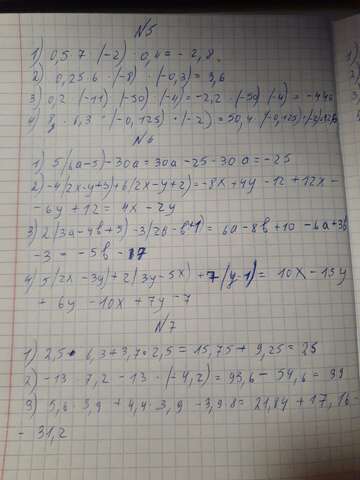 N5
1) 0,5 · 7 · (-2) · 0,4 = - 2,8.
2) 0,25 · 6 · (-8) · (-0,3) = 3,6
3) 0,2 · (-11) · (-50) · (-4) = -2,2 · (-50) · (-4) = -440
4) 8 · 6,3 · (-0,125) · (-2) = 50,4 · (-0,125) · (-2)
N6
1) 5(6a-5)-30a = 30a - 25 - 30a = -25
2) -4(2x-y+3)+6(2x-y+2) = -8x + 4y - 12 + 12x -
- 6y + 12 = 4x - 2y
3) 2(3a-4b+5)-3(2a-b+1) = 6a - 8b + 10 - 6a + 3b
- 3 = -5b - 17
4) 5(2x - 3y) + 2(3y - 5x) + 7(y-1) = 10x - 15y
+ 6y - 10x + 7y - 7
N7
1) 2,5 · 6,3 + 3,7 · 2,5 = 15,75 + 9,25 = 25
2) -13 · 7,2 - 13 · (-4,2) = 93,6 - 54,6 = 39
3) 5,6 · 3,9 + 4,4 · 3,9 - 3,9 · 8 = 21,84 + 17,16 -
- 31,2